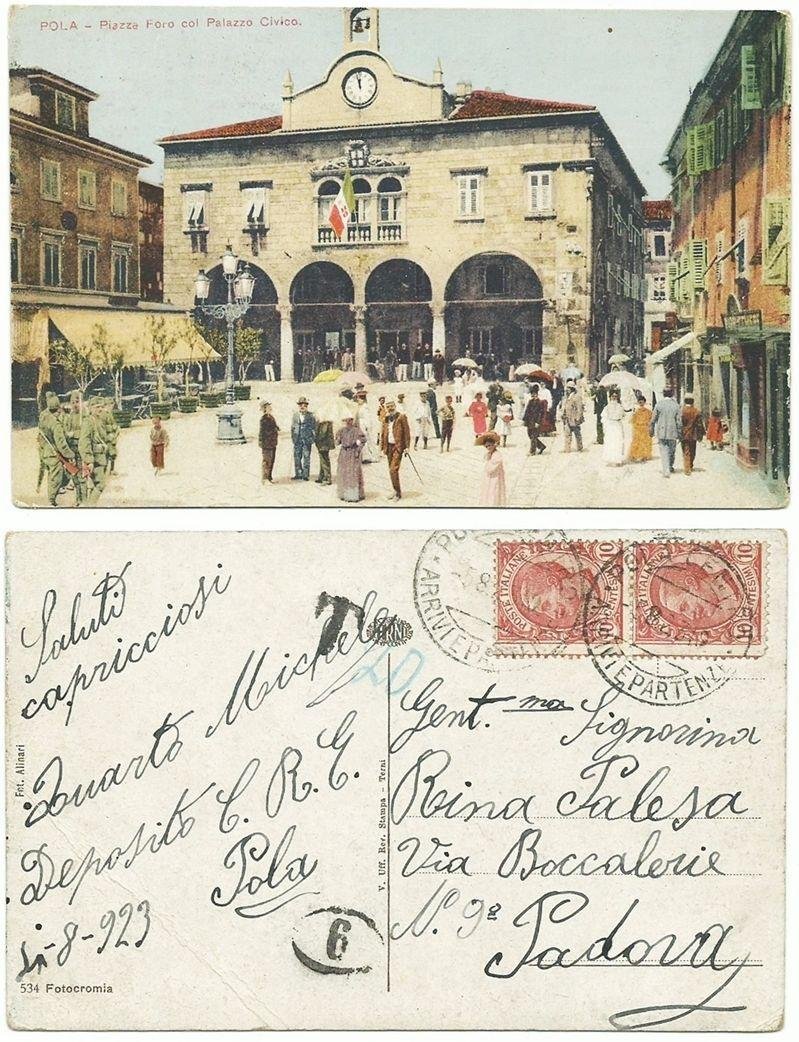 POLA – Piazza Foro col Palazzo Civico.
Saluti
capricciosi
T
TERNI
20
Quarto Michele
Deposito C. R. E.
Pola
-8-923
6
534 Fotocromia
Fot. Alinari
V. Uff. Rev. Stampa - Terni
ARRIVI E PARTENZE
POSTE ITALIANE
10
10
POSTE ITALIANE
10
10
Gent.ma Signorina
Rina Palesa
Via Boccalerie
N.º 9ª
Padova